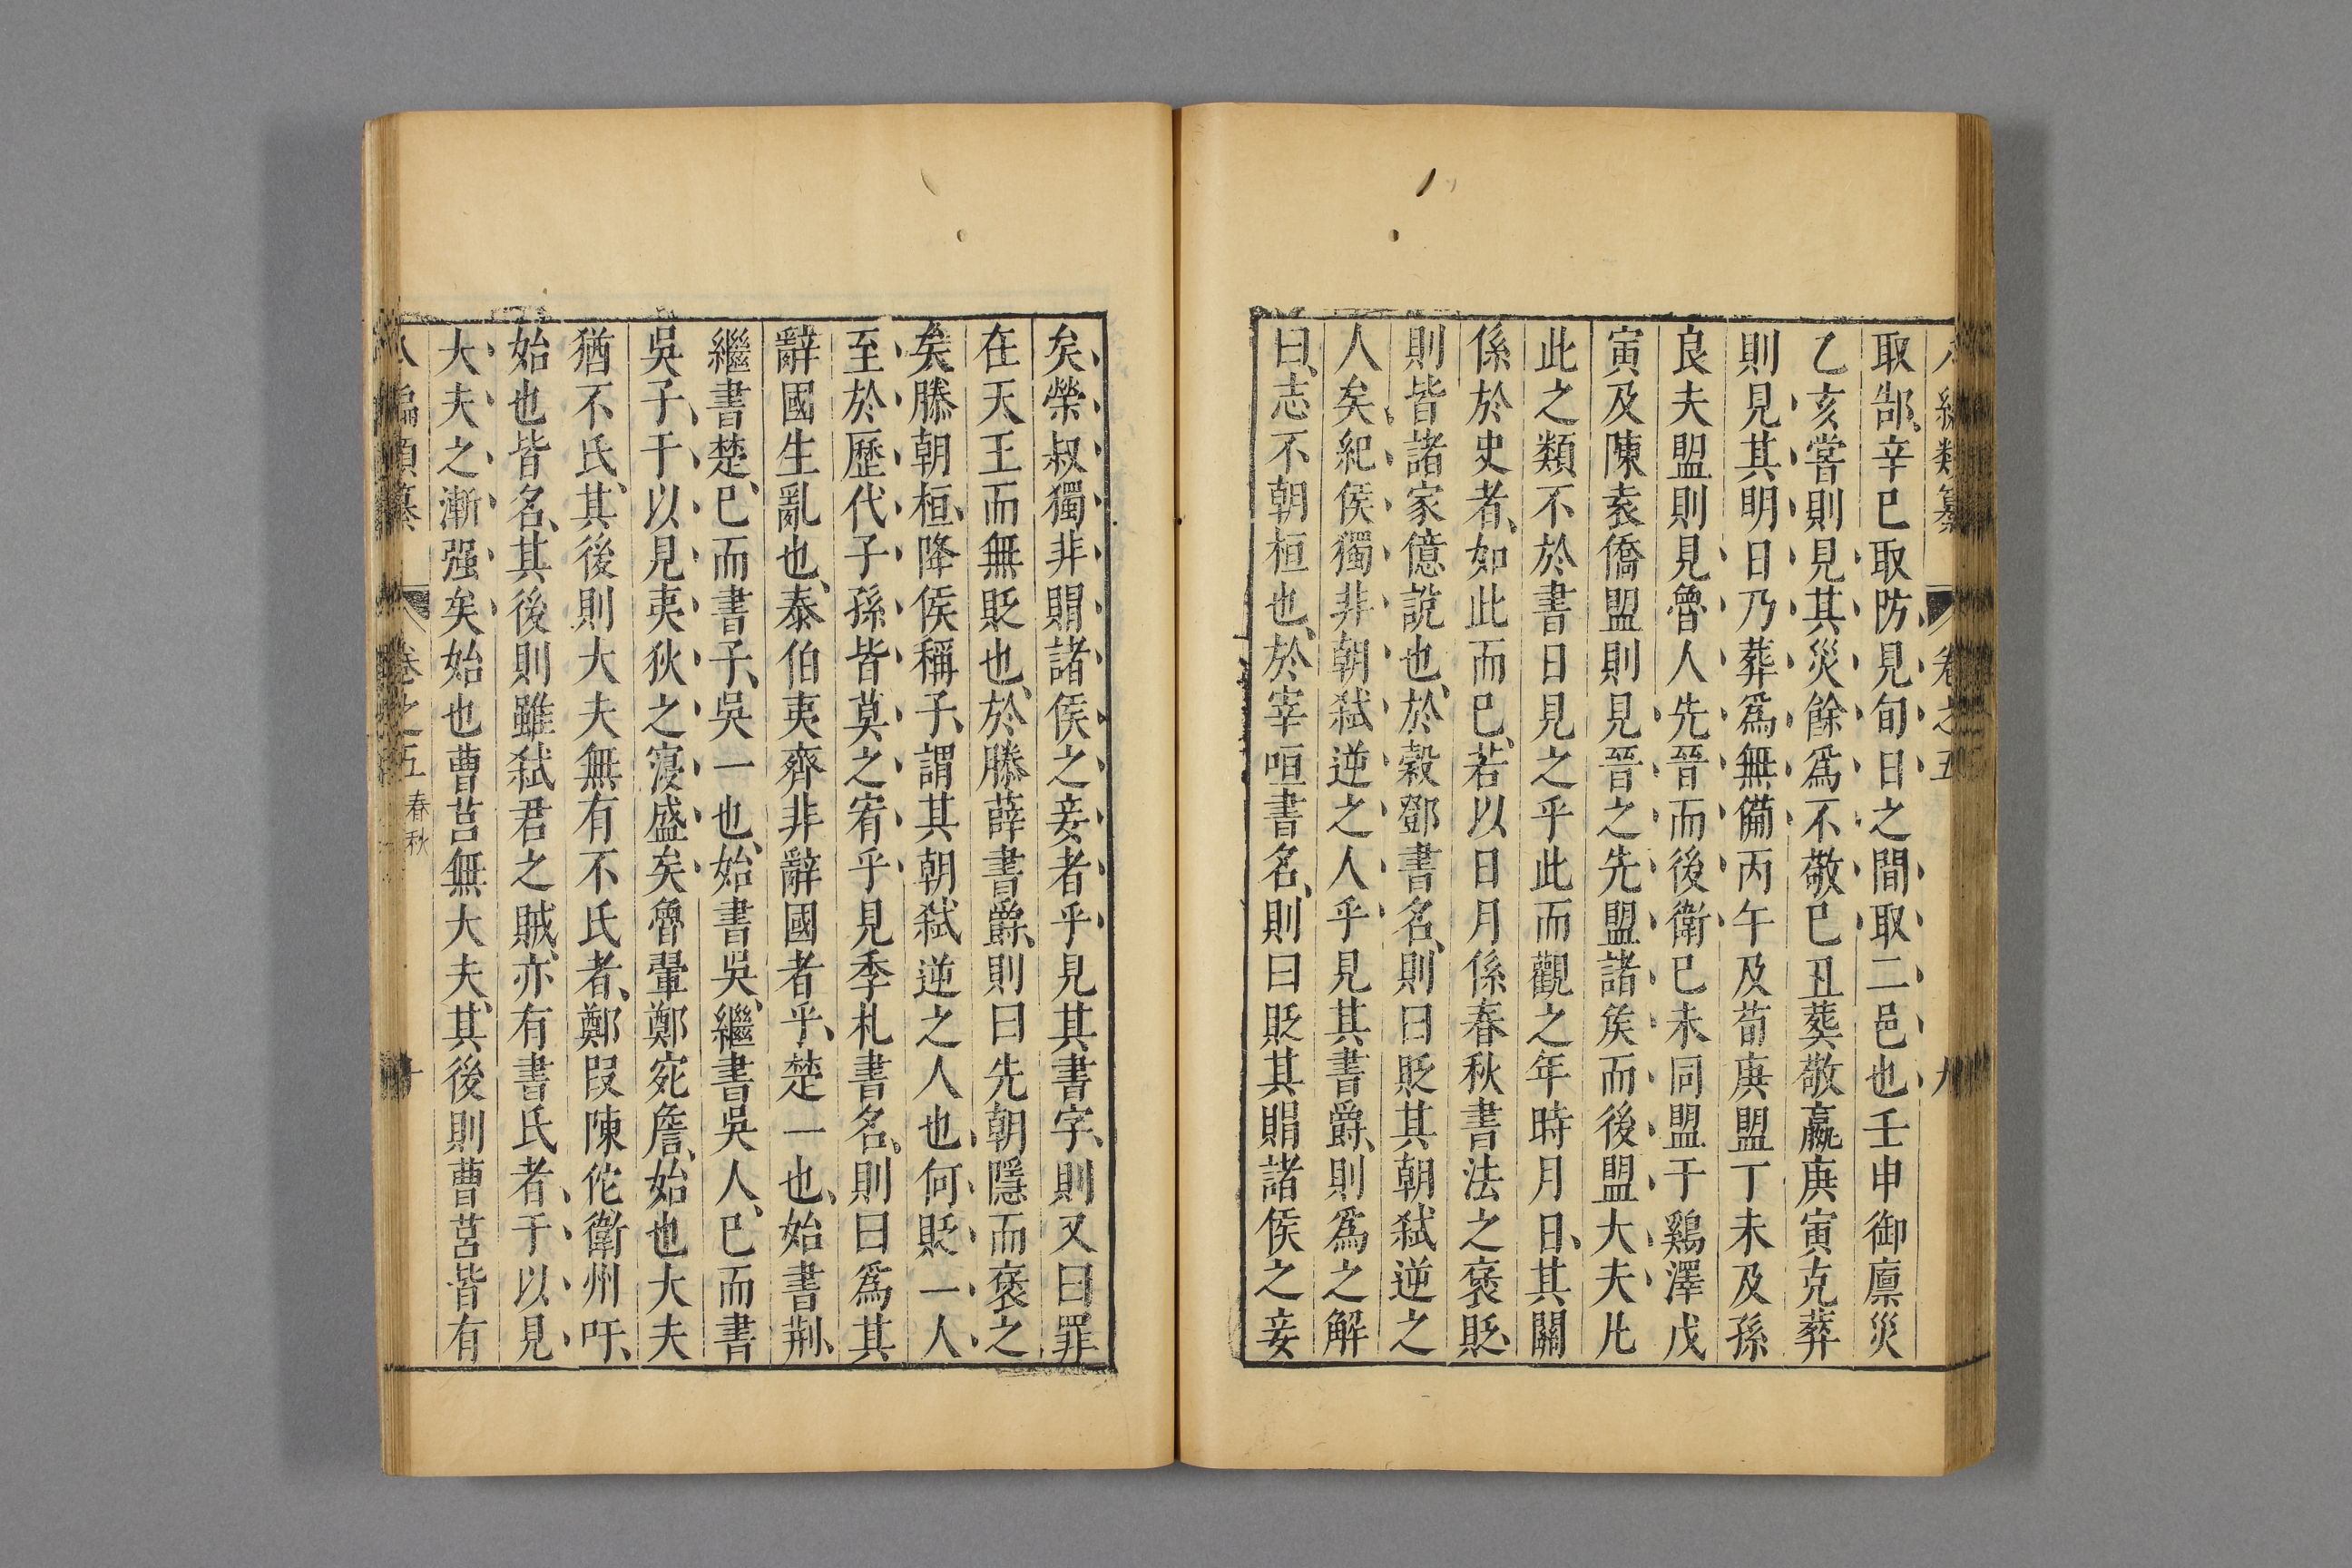 取郜辛巳取防見旬日之間取二邑也壬申御廩災
乙亥嘗則見其災餘爲不敬己丑葬敬嬴庚寅克葬
則見其明日乃葬爲無備丙午及荀庚盟丁未及孫
良夫盟則見魯人先晉而後衛己未同盟于鷄澤戊
寅及陳袁僑盟則見晉之先盟諸侯而後盟大夫凡
此之類不於書日見之乎此而觀之年時月日、其關
係於史者、如此而已、若以日月係春秋書法之褒貶、
則皆諸家億說也、於穀鄧書名、則曰貶其朝弑逆之
人矣紀侯獨非朝弑逆之人乎見其書爵、則爲之解
曰、志不朝桓也、於宰咺書名、則曰貶其賵諸侯之妾
矣、榮叔獨非賵諸侯之妾者乎見其書字、則又曰罪
在天王而無貶也、於滕薛書爵、則曰先朝隱而褒之
矣滕朝桓、降侯稱子、謂其朝弑逆之人也何貶一人
至於歷代子孫皆莫之宥乎見季札書名。則曰爲其
辭國生亂也、泰伯夷齊非辭國者乎、楚一也、始書荆、
繼書楚、已而書子、吳一也、始書吳、繼書吳人、已而書
吳子、于以見夷狄之寖盛矣魯翬鄭宛詹、始也大夫
猶不氏、其後則大夫無有不氏者、鄭叚陳佗衛州吁、
始也皆名、其後則雖弑君之賊、亦有書氏者、于以見
大夫之漸强矣始也曹莒無大夫、其後則曹莒皆有
卷之五 春秋